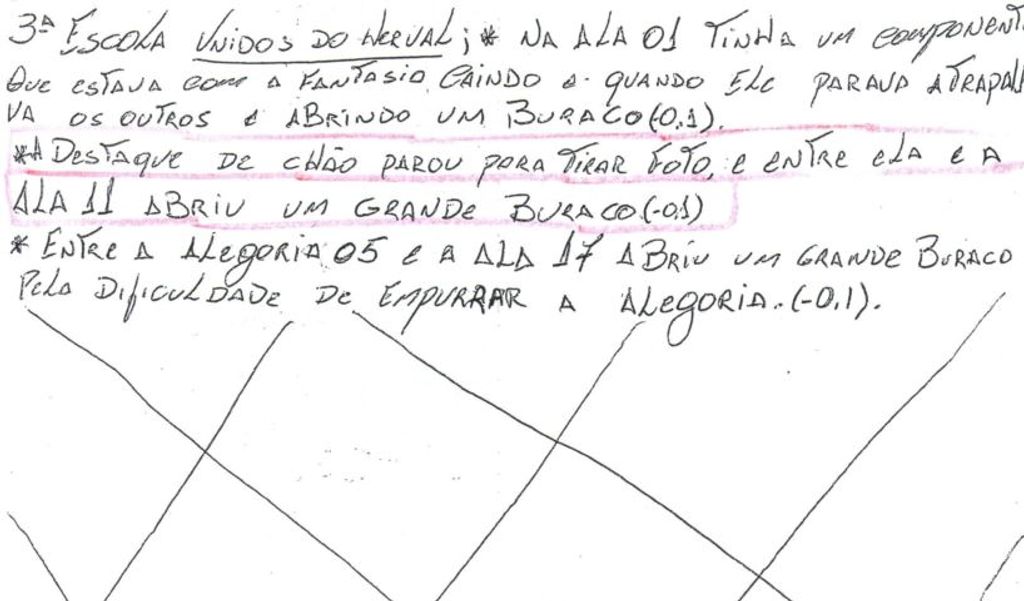 3ª ESCOLA UNIDOS DO HERVAL; * NA ALA 01 TINHA UM COMPONENT
QUE ESTAVA COM A FANTASIA CAINDO E QUANDO ELE PARAVA ATRAPALH
VA OS OUTROS E ABRINDO UM BURACO (-0,1).
*A DESTAQUE DE CHÃO PAROU PARA TIRAR FOTO, E ENTRE ELA E A
ALA 11 ABRIU UM GRANDE BURACO (-0,1)
* ENTRE A ALEGORIA 05 E A ALA 17 ABRIU UM GRANDE BURACO
PELA DIFICULDADE DE EMPURRAR A ALEGORIA. (-0,1).